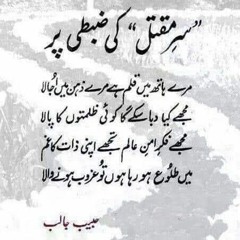 ”سرِ مقتل“ کی ضبطی پر
مرے ہاتھ میں قلم ہے مرے ذہن میں اُجالا
مجھے کیا دبا سکے گا کوئی ظلمتوں کا پالا
مجھے فکرِ امنِ عالم تجھے اپنی ذات کا غم
میں طلُوع ہو رہا ہوں تُو غروب ہونے والا
حبیب جالب